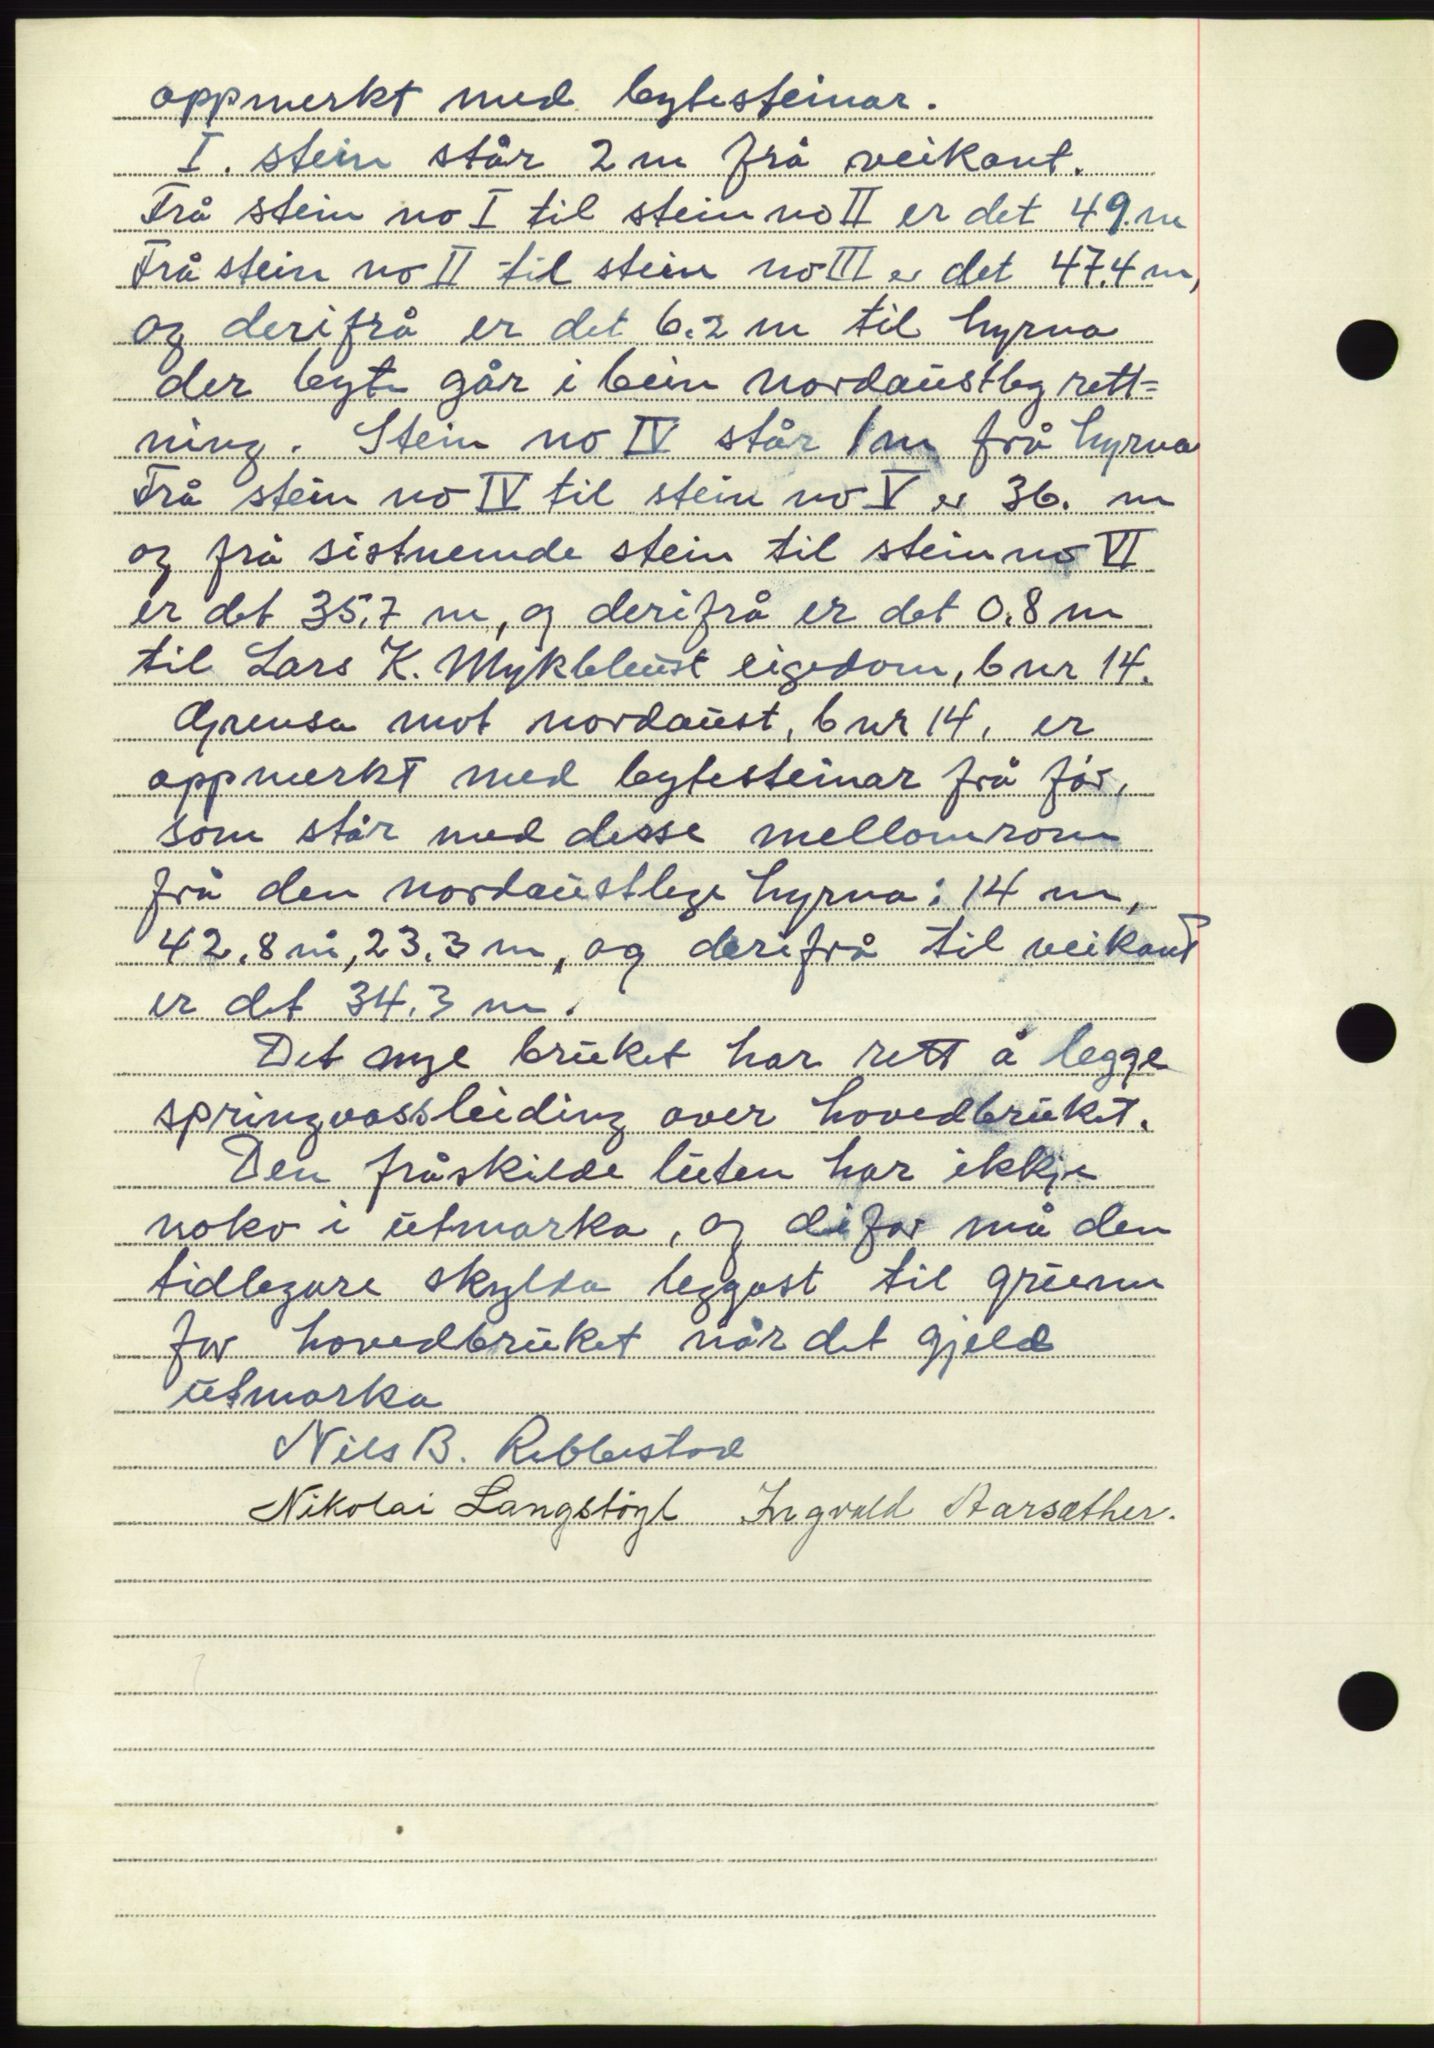 oppmerkt med bytesteinar.
I. stein står 2 m frå veikant.
Frå stein no I til stein no II er det 49. m
Frå stein no II til stein no III er det 47.4 m,
og derifrå er det 6.2 m til hyrna
der byte går i bein nordaustleg rett=
ning. Stein no IV står 1 m frå hyrna
Frå stein no IV til stein no V er 36. m
og frå sistnemde stein til stein no VI
er det 35.7 m, og derifrå er det 0.8 m
til Lars K. Myklebust eigedom, bnr 14.
Grensa mot nordaust, bnr 14, er
oppmerkt med bytesteinar frå før,
som står med desse mellomrom
frå den nordaustlege hyrna: 14 m,
42.8 m, 23.3 m, og derifrå til veikant
er det 34.3 m.
Det nye bruket har rett å legge
springvassleiding over hovedbruket.
Den fråskilde luten har ikkje
noko i utmarka, og difor må den
tidlegare skylda leggast til grunn
for hovedbruket når det gjeld
utmarka
Nils B. Ribbestad
Nikolai Langstøyl Ingvald Aarsæther.